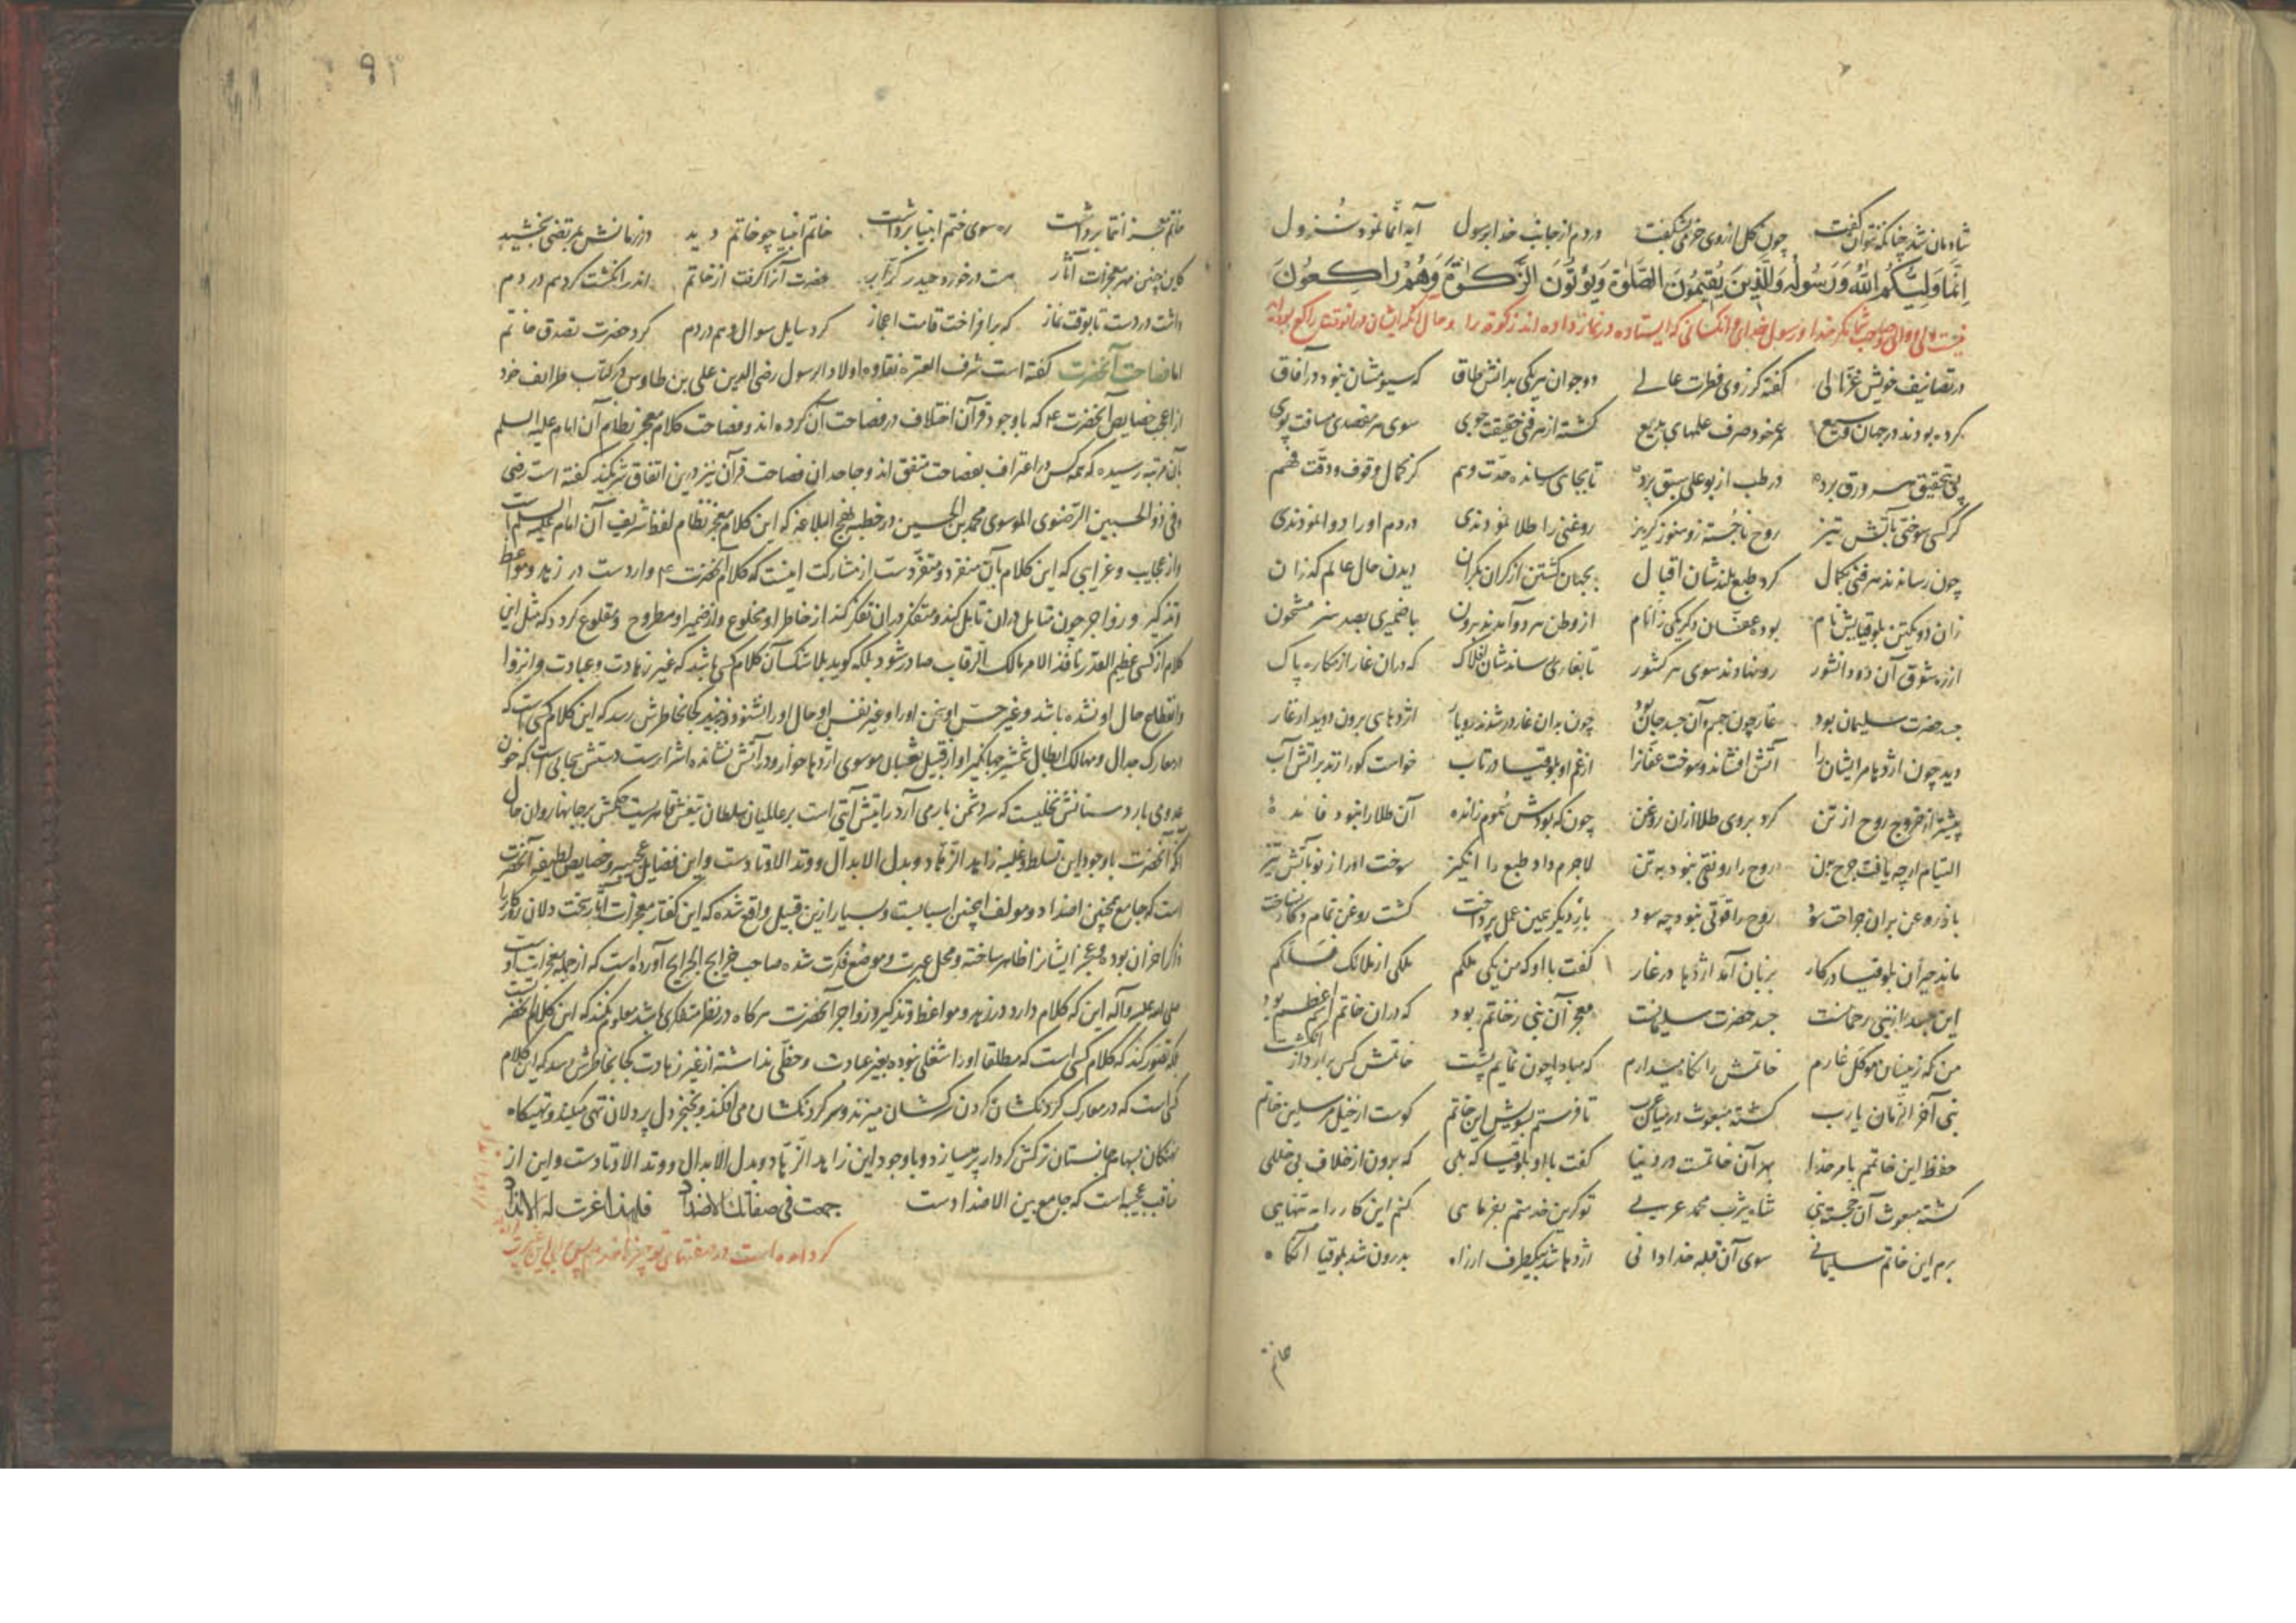 شادمان شد چنانکه نتوان گفت چون گل از روی خرمی بشکفت در دم از جانب خدا برسول آیه انما نمود نزول
إِنَّمَا وَلِيُّكُمُ اللَّهُ وَرَسُولُهُ وَالَّذِينَ يُقِيمُونَ الصَّلَوٰةَ وَيُؤْتُونَ الزَّكَوٰةَ وَهُمْ رَاكِعُونَ
نیست ولی و صاحب شما مگر خدا و رسول خدای و آنکسانی که ایستاده در نماز و داده اند زکوة را و حال آنکه ایشان در آنوقت راکع بودند
در تصانیف خویش غزالی گفته کز روی فطرت عالی دو جوان هر یکی بدانش طاق که سیومشان نبود در آفاق
کرده بودند در جهان وسیع عمر خود صرف علمهای بدیع گشته از هر فنی حقیقت جوی سوی هر مقصدی مسافت پوی
پی تحقیق هر ورق برده در طب از بوعلی سبق برده تا بجای رسانده حدت وهم کز کمال وقوف و دقت فهم
گر کسی سوختی بآتش تیز روح ناجسته زو هنوز گریز روغنی را طلا نمودندی در دم او را دوا نمودندی
چون رساندند هر فنی بکمال کرد طبع بلندشان اقبال بجهان گشتن از کران بکران دیدن حال عالم گذران
زان دو یکتن بلوقیایش نام بوده عفان دگر یکی ز انام از وطن هر دو آمدند برون با ضمیری بصد هنر مشحون
از ره شوق آن دو دانشور رو نهادند سوی هر کشور تا بغاری رساندشان افلاک که دران غار از مکاره پاک
جسد حضرت سلیمان بود غار چون جسم و آن جسد جان بود چون بدان غار در شدند دو یار اژدهای برون دوید از غار
دید چون اژدها مر ایشان را آتش افشاند و سوخت عفانرا از غم او بلوقیا در تاب خواست کو را زند بر آتش آب
پیشتر از خروج روح از تن کرد بر وی طلا ازان روغن چون که بودش سموم زاننده آن طلا را نبود فائده
التیام ار چه یافت جرح بدن روح را رونقی نبود به تن لاجرم داد طبع را انگیز سوخت او را ز نو بآتش تیز
باز روغن بران جراحت سود روح را قوتی نبود چه سود باز دیگر بعین عمل پرداخت گشت روغن تمام و کار نساخت
ماند حیران بلوقیا در کار بزبان آمد اژدها در غار گفت با او که من یکی ملکم ملکی از ملائک فلکم
این جسد از نبی رحمانست جسد حضرت سلیمانست معجز آن نبی ز خاتم بود که دران خاتم اسم اعظم بود
من که زینسان موکل غارم خاتمش را نگاه میدارم که مبادا چون نمایم پشت خاتمش کس برارد از انگشت
نبی آخر الزمان یا رب گشته مبعوث در میان عرب تا فرستم بسویش این خاتم کوست از خیل مرسلین خاتم
حفظ این خاتمم بامر خدا بهر آن خاتمست در دنیا گفت با او بلوقیا که بلی که برون از خلاف بی خللی
گشته مبعوث آن خجسته نبی شاه یثرب محمد عربی تو گرین خدمتم بفرمایی کنم این کار را به تنهایی
برم این خاتم سلیمانی سوی آن قبله خدادانی اژدها شد بیکطرف از راه بدرون شد بلوقیا آنگاه
خاتم
٩٢
خاتم معجز انتما برداشت ره سوی ختم انبیا برداشت خاتم انبیا چو خاتم دید در زمانش بمرتضی بخشید
کاین چنین مهر معجزات آثار هست در خورد حیدر کرار حضرت آنرا گرفت از خاتم اندر انگشت کرد هم در دم
داشت در دست تا بوقت نماز که برافراخت قامت اعجاز کرد سایل سوال و هم در دم کرد حضرت تصدق خاتم
اما فصاحت آنحضرت گفته است شرف العترة نقاوه اولاد الرسول رضی الدین علی بن طاوس در کتاب طرائف خود
از اعجب خصایص آنحضرت ع که باوجود قرآن اختلاف در فصاحت آن کرده اند و فصاحت کلام معجز نظام آن امام علیه السلم
بآن مرتبه رسیده که همه کس در اعتراف بفصاحت متفق اند و جاحدان فصاحت قرآن نیز درین اتفاق شریکند گفته است رضی
وفی ذو الحسبین الرضوی الموسوی محمد بن الحسین در خطبه نهج البلاغه که این کلام معجز نظام لفظ شریف آن امام علیه السلم است
و از عجایب و غرایبی که این کلام بآن منفرد و متفردست از مشارکت اینست که کلام آنحضرت ع واردست در زهد و مواعظ
و تذکیر و زواجر چون متامل دران تامل کند و متفکر دران تفکر کند از خاطر او مخلوع و از ضمیر او مطروح و مقلوع گردد که مثل این
کلام از کسی عظیم القدر نافذ الامر مالک الرقاب صادر شود بلکه گوید بلا شک آن کلام کسی باشد که غیر زهادت و عبادت و انزوا
و انقطاع حال او نشده باشد و غیر حس او سخن او را و غیر نفس او حال او را نشنود و نبیند کجا بخاطرش رسد که این کلام کسی است که
در معارک جدال و مهالک ابطال شمشیر جهانگیر او از قبیل ثعبان موسوی اژدها خوار و در آتش نشانده اشرارست دستش سحابی است که خون
عدوی بارد سنانش نخلیست که سر دشمن بار می آرد رایتش آیتی است بر عالمیان سلطان تیغش قاهریست حکمش بر جانها روان حال
آنکه آنحضرت باوجود این تسلط و غلبه زاهد الزهاد و بدل الابدال و وتد الاوتادست و این فضایل عجیبه و خصایص لطیفه آنحضرت
است که جامع همچنین اضداد و مولف اینچنین اسبابست و بسیار ازین قبیل واقع شده که این گفتار معجزات آثار سخت دلان روزگار را
مذکر اخزان بوده و معجز ایشانرا ظاهر ساخته و محل عبرت و موضع فکرت شده صاحب خرایج الجرایح آورده است که از جمله معجزات او
صلی الله علیه و آله این که کلام دارد در زهد و مواعظ و تذکیر و زواجر آنحضرت هرگاه در نظر متفکری باشد معلوم نمیکند که این کلام آنحضرتست
بلکه تصور کند که کلام کسی است که مطلقا او را شغلی نبوده بغیر عبادت و حظی نداشته از غیر زهادت کجا بخاطرش رسد که این کلام
کسی است که در معارک گردنکشان گردن سرکشان میزند و سر گردنکشان می افکند و بخنجر دل پر دلان تهی میکند و تهیگاه
سهمکان بسهام جانستان ترکش کردار پر میسازد و باوجود این زاهد الزهاد و بدل الابدال و وتد الاوتادست و این از
مناقب عجیبه است که جامع بین الاضدادست جمعت فی صفاتک الاضداد فلهذا عزت لک الانداد
گرد آمده است در صفتهای تو چیزها ضد هم پس برای این عزیزست